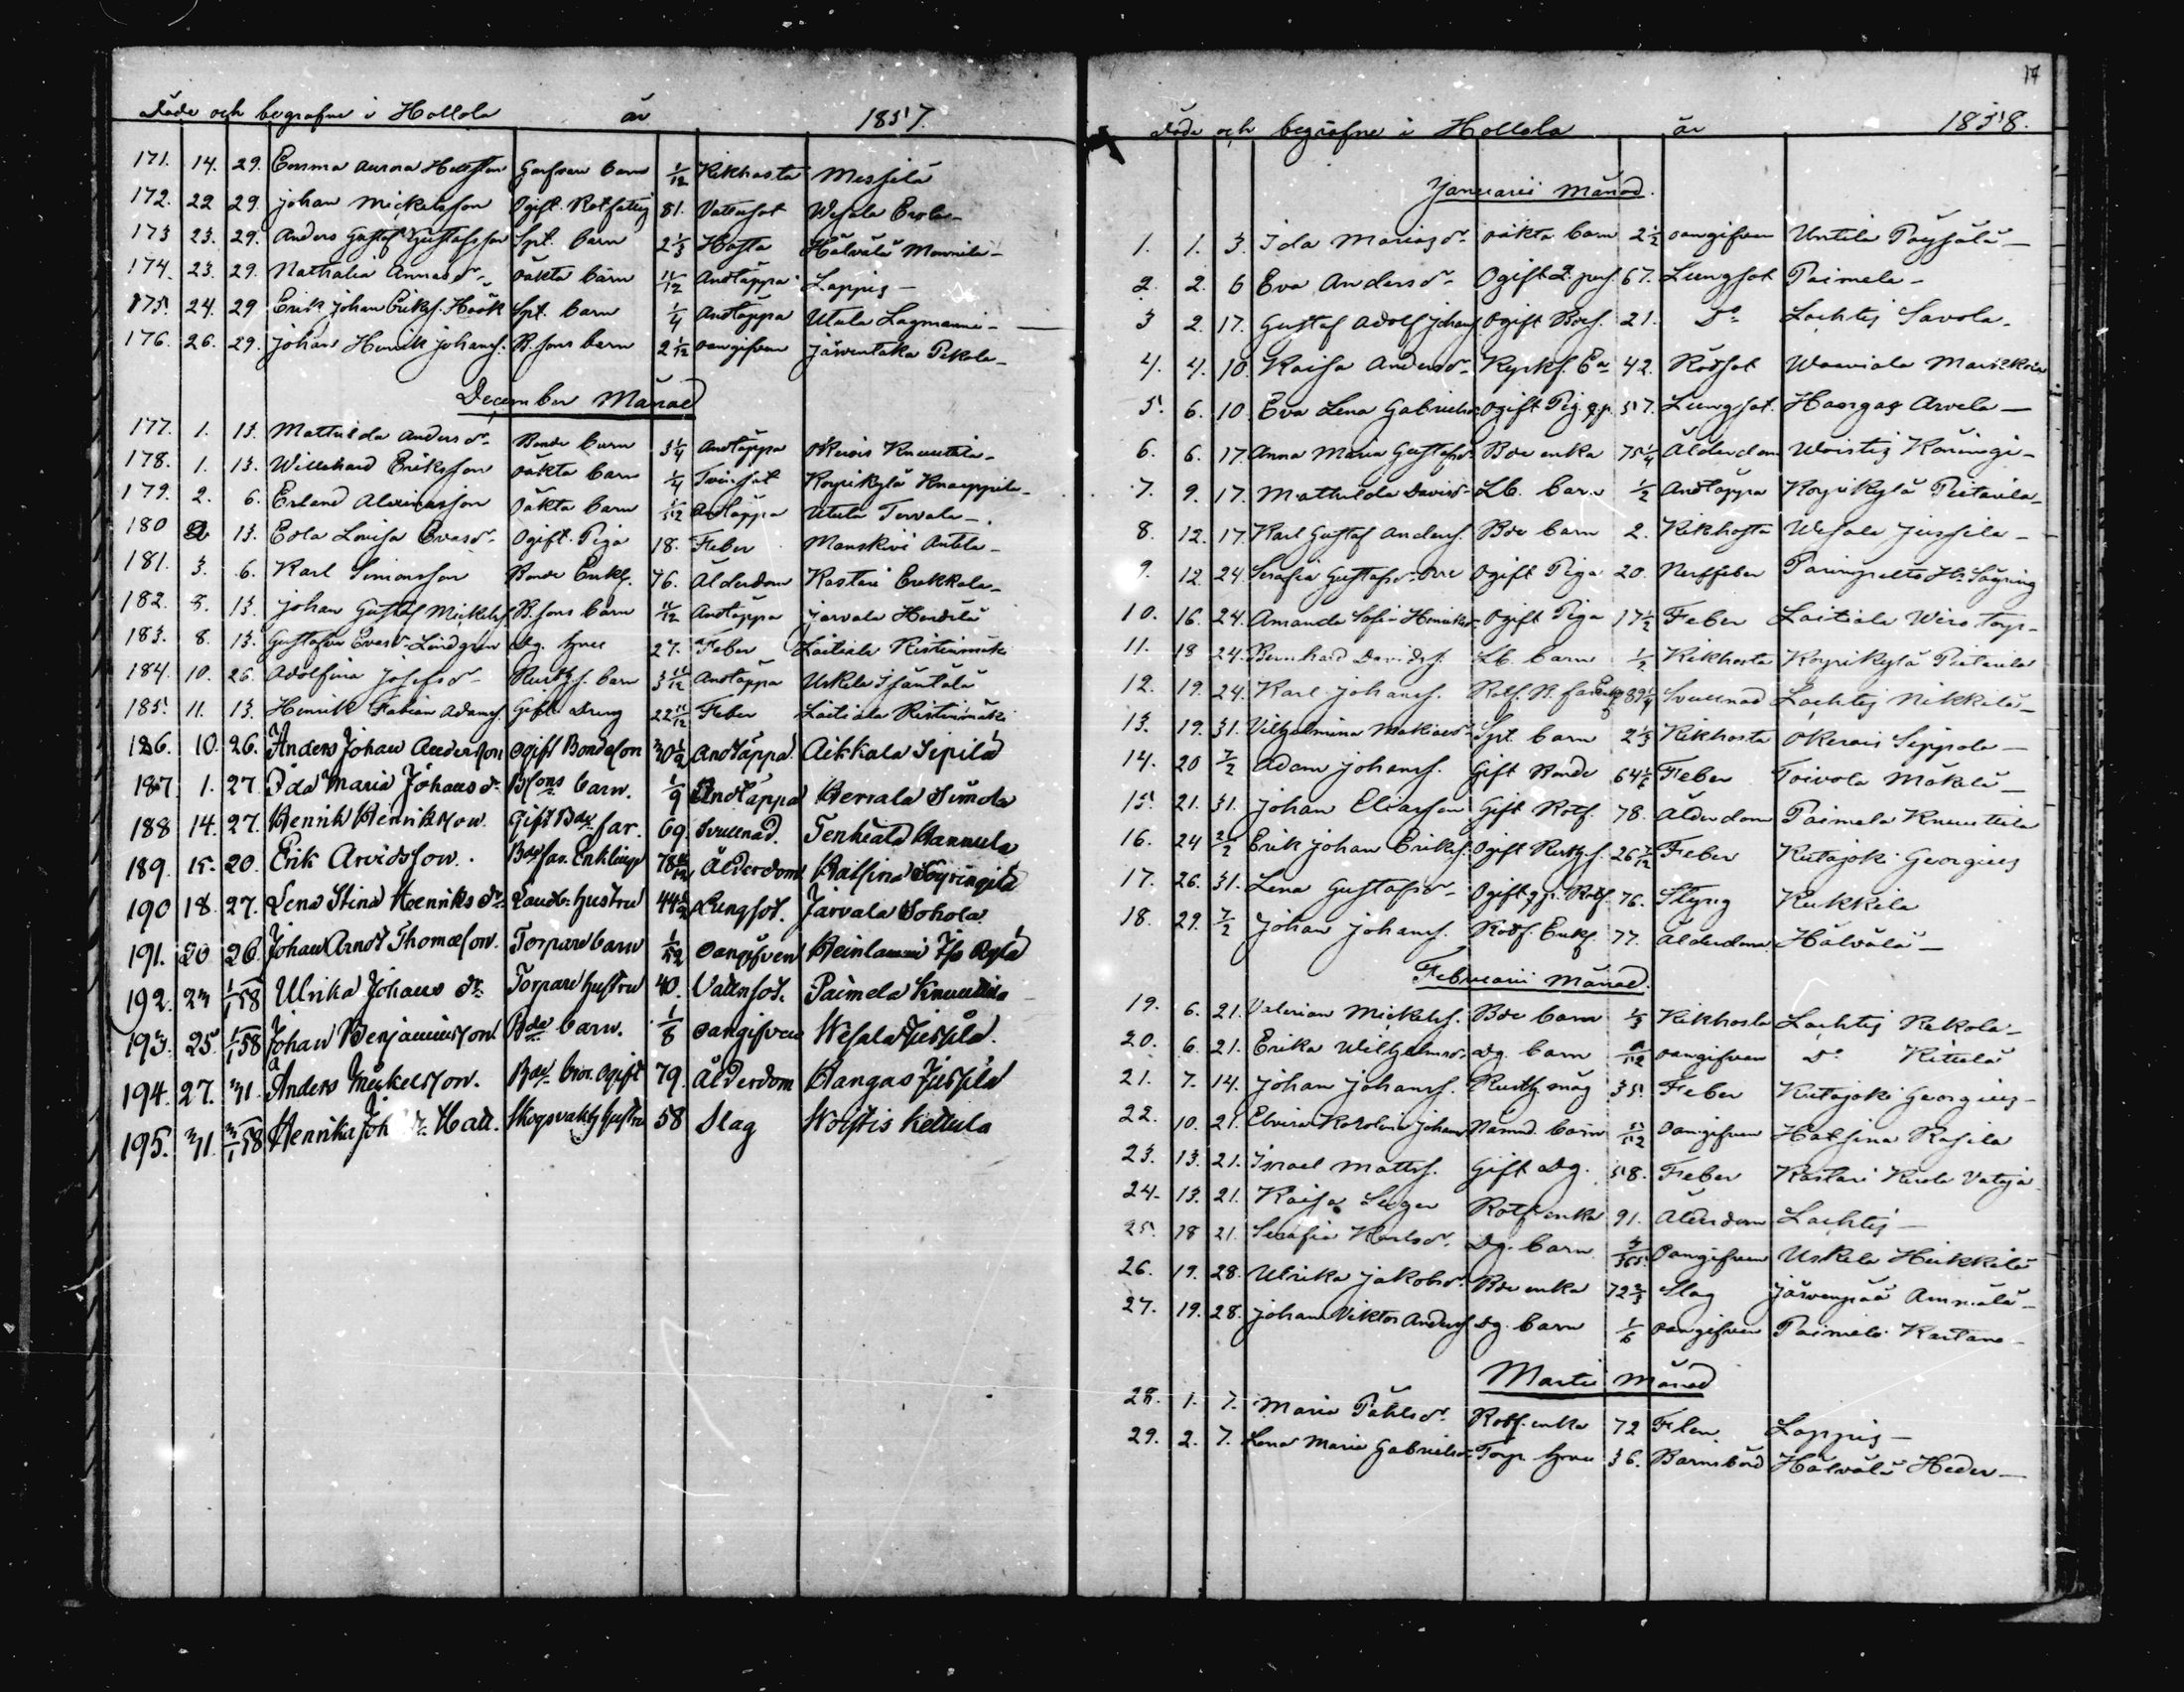 Döde och begrafne i Hollola år 1857.
171. 14. 29. Emma Aurora Garfvare barn 1/12 Kikhosta Messilä
172. 22 29. Johan Mickelsson Ogift Rotfattig 81. Vattusot Wesala Erola
173 23. 29. Anders Gustaf Gustafsson Spt. barn 2 1/3 Hosta Hälvälä
174. 23. 29. Nathalia Annasdr oäkta barn 11/12 Andtäppa Lappis
175. 24. 29 Erik Johan Eriks. Höök Spt. barn 1/4 Andtäppa Utula Lagmanni
176. 26. 29. Johan Henrik Johanss. B. sons barn 2 1/12 oangifven Järventaka Pekola
December Månad
177. 1. 13. Mathilda Andersdr Bonde barn 3 1/4 Andtäppa Okerois Knuutila
178. 1. 13. Willehard Eriksson oäkta barn 1/4 Tvinsot Korpikylä Knaappila
179. 2. 6. Erland oäkta barn Andtäppa Utula Tervala
180 2 13. Edla Lovisa Evasdr Ogift Piga 18. Feber Manskivi Antila
181. 3. 6. Karl Simonsson Bonde Enkl. 76. Ålderdom Kastari Erkkola
182. 8. 13. Johan Gustaf Mickels. B. sons barn 11/12 Andtäppa Jarvala
183. 8. 13. Gustafva Evasdr Lindgren Dg. hru 27. Feber Laitiala Ristinmäki
184. 10. 26. Adolfina Josefsdr Rusth. barn 3 11/12 Andtäppa Uskila
185. 11. 13. Henrik Fabian Adams. Gift Dreng 22 11/12 Feber Laitiala Ristinmäki
186. 10. 26. Anders Johan Andersson Ogift Bondeson 30 1/2 Andtäppa Aikkala Sipilä
187 1. 27. Ida Maria Johansdr Bsons barn. 1/9 Andtäppa Herrala Simola
188 14. 27. Henrik Henriksson Gift Bde far. 69 Svullnad. Tenhiälä Hannula
189. 15. 20. Erik Arvidsson. Bde far. Enkling 78 Ålderdom Hatsina
190 18. 27. Lena Stina Henriksdr Landb: hustru 44 Lungsot. Järvala Sohola
191. 20 26. Johan Arndt Thomasson. Torpare barn 1/52 Oangifven Heinlammi
192. 23 1/1 58 Ulrika Johans dr Torpare hustru 40. Vattusot. Paimela Knuutila
193. 25. 1/1 58 Johan Benjaminsson Bde barn. 1/8 oangifven Wesala Jussila.
194. 27. 31. Anders Mickelsson. Bde bror. Ogift 79. Ålderdom Kangas Jussila
195. 31. 3/1 58 Henrika Joh dr. Hall. Skogsvakts hustru 58 Slag Woistis Kettula
17
Döde och begrafne i Hollola år 1858.
Januarii Månad.
1. 1. 3. Ida Mariasdr oäkta barn 2 1/2 oangifven Untila Pöyhälä
2. 2. 6 Eva Andersdr Ogift 67. Lungsot Paimela
3 2. 17. Gustaf Adolf Johans Ogift Bdes. 21. Do Lachtis Savola
4. 4. 10. Kaisa Andersdr Kyrks. Ea 42. Rödsot Waaviala
5. 6. 10. Eva Lena Gabrielsdr Ogift Pig. 57. Lungsot. Kangas Arvela
6. 6. 17. Anna Maria Gustafsdr Bde enka 75 1/4 Ålderdom Woistis Köringi
7. 9. 17. Mathilda Davidsdr Lb. barn 1/2 Andtäppa Korpikylä Pietarila
8. 12. 17. Karl Gustaf Anders. Bde barn 2. Kikhosta Wesala Jussila
9. 12. 24. Serafia Gustafsdr Ogift Piga 20. Nerffeber
10. 16. 24. Amanda Sofia Henriksdr Ogift Piga 17 1/2 Feber Laitiala Wiro torp
11. 18 24. Bernhard Davids. Lb. barn 1/2 Kikhosta Korpikylä Pietarila
12. 19. 24. Karl Johans. Rotf. B. far Enkl. 89 1/4 Svullnad Lachtis Nikkilä
13. 19. 31. Vilhelmina Spt. barn 2 1/3 Kikhosta Okerois Seppola
14. 20 7/2 Adam Johans. Gift Bonde 64 1/2 Feber Toivola Mäkelä
15. 21. 31. Johan Eliasson Gift Rotf. 78. Ålderdom Paimela Knuutila
16. 24 2/2 Erik Johan Eriks. Ogift Rusth. s. 26 7/12 Feber Kutajoki Georgius
17. 26. 31. Lena Gustafsdr Ogift Rotf. 76. Styng Kukkila
18. 29. 7/2 Johan Johans. Rotf. Enkl. 77. Ålderdom Hälvälä
Februarii Månad.
19. 6. 21. Valerian Mickels. Bde barn 1/3 Kikhosta Lachtis Rekola
20. 6. 21. Erika Wilhelmsdr Dg. barn oangifven Do Kittilä
21. 7. 14. Johan Johans. Rusth. måg 35. Feber Kutajoki Georgius
22. 10. 21. Elvira Karolina Johans Nämnd. barn 11/12 Oangifven Hatsina Rasila
23. 13. 21. Israel Matts. Gift Dg. 58. Feber Kastari
24. 13. 21. Kaisa Seger Rotf enka 91. Ålderdom Lachtis
25. 18 21. Serafia Karlsdr Dg. barn 3/365 Oangifven Uskila Heikkilä
26. 19. 28. Ulrika Jakobsdr Bde enka 72 2/3 Slag Järvenpää Ammälä
27. 19. 28. Johan Viktor Anders Dg. barn 1/6 oangifven Paimela Kartano
Martii Månad
28. 1. 7. Maria Påhlsdr Rotf. enka 72 Flen. Lappis
29. 2. 7. Lena Maria Gabrielsdr Torp. hru 36. Barnsbörd Hälvälä Heder